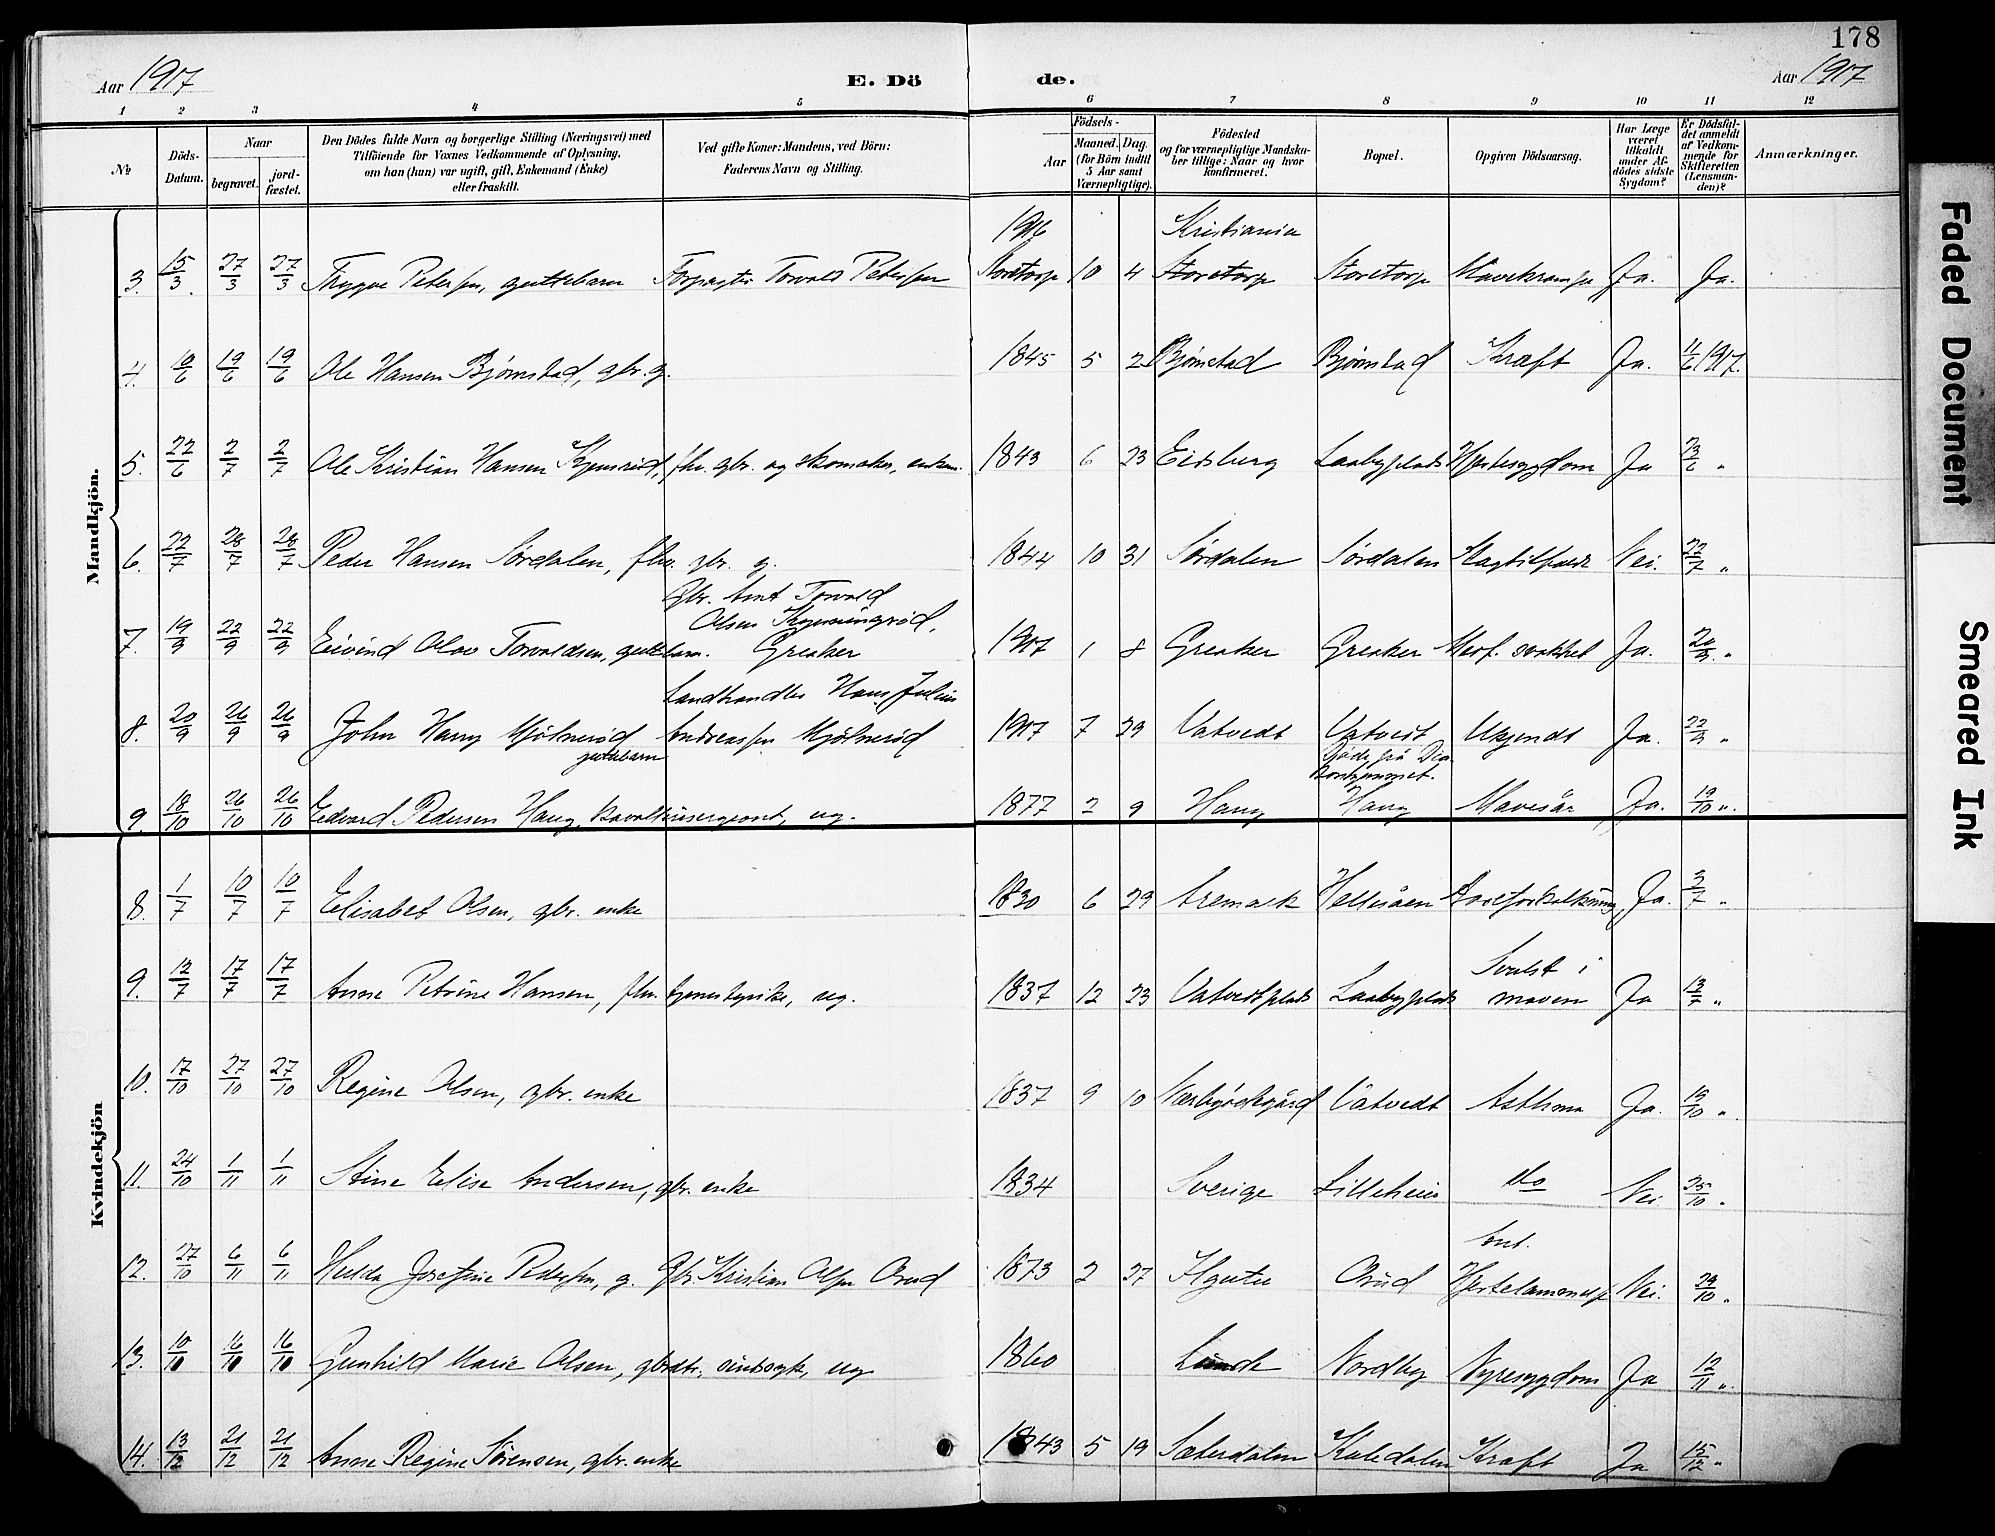 178
Aar 1917 E. Dö de. Aar 1917
1 2 3 4 5 6 7 8 9 10 11 12
№ Döds-Datum. Naar begravet. jordfæstet. Den Dödes fulde Navn og borgerlige Stilling (Næringsvei) med Tilföiende for Voxnes Vedkommende af Oplysning, om han (hun) var ugift, gift, Enkemand (Enke) eller fraskilt. Ved gifte Koner: Mandens, ved Börn: Faderens Navn og Stilling. Födsels- Aar Maaned. Dag. (for Börn indtil 5 Aar samt Værnepligtige). Födested og for værnepligtige Mandskaber tillige: Naar og hvor konfirmeret. Bopæl. Opgiven Dödsaarsag. Har Læge været tilkaldt under Afdödes sidste Sygdom? Er Dödsfaldet anmeldt af Vedkommende for Skifteretten (Lensmanden)? Anmærkninger.
Mandkjön.
1916 Kristiania
3. 15/3 27/3 27/3 Trygve Petersen, guttebarn Forpagter Torvald Petersen Storetorp 10 4 Storetorp Storetorp Mavekrampe Ja. Ja.
4. 10/6 19/6 19/6 Ole Hansen Bjørnstad, gbr. g. 1845 5 2 Bjørnstad Bjørnstad Kræft Ja. 11/6 1917.
5. 22/6 2/7 2/7 Ole Kristian Hansen fhv. gbr. og skomaker, enkem. 1843 6 23 Eidsberg Laabyplads Hjertesygdom Ja 23/6 "
6. 22/7 28/7 28/7 Peder Hansen Sørdalen, fhv. gbr. g. 1844 10 31 Sørdalen Sørdalen Slagtilfælde Nei. 22/7 "
Gbr. Arnt Torvald
Olsen
7. 19/9 22/9 22/9 Eivind Olav Torvaldsen, guttebarn. Greaker 1917 1 8 Greaker Greaker Medf. svakhet Ja. 20/9 "
Landhandler Hans Julius
8. 20/9 26/9 26/9 John Harry Mjølnerød Andreassen Mjølnerød 1917 7 29 Vatvedt Vatvedt Ukjendt Ja. 22/9 "
guttebarn
Døde på Diakonhjemmet.
9. 18/10 26/10 26/10 Edvard Pedersen Haug, kavallerisergeant, ug. 1877 2 9 Haug Haug Mavesår Ja. 19/10 "
Kvindekjön
8. 1/7 10/7 10/7 Elisabet Olsen, gbr. enke 1830 6 29 Aremark Hellesåen Aareforkalkning Ja. 2/7 "
Svulst i
9. 12/7 17/7 17/7 Anne Petrine Hansen, fhv. tjenestepike, ug. 1837 12 23 Vatvedtplads Laabyplads maven Ja 13/7 "
10. 17/10 27/10 27/10 Regine Olsen, gbr. enke 1837 9 10 Vatvedt Asthma Ja. 19/10 "
11. 24/10 1/11 1/11 Stine Elise Andersen, gbr. enke 1834 Sverige Lilleheier do Nei 25/10 "
Ant.
12. 27/10 6/11 6/11 Hulda Josefine Pedersen, g. Gbr. Kristian Olsen Orud 1873 2 27 Orud Hjertelammelse Nei. 29/10 "
13. 10/10 16/10 16/10 Gunhild Marie Olsen, gbrdtr., sindssyk, ug 1860 Nordby Nyresygdom Ja 12/11 "
14. 13/12 21/12 21/12 Anne Regine Sørensen, gbr. enke 1843 5 19 Sæterdalen Kaledalen Kræft Ja 15/12 "
Faded Document
Smeared Ink